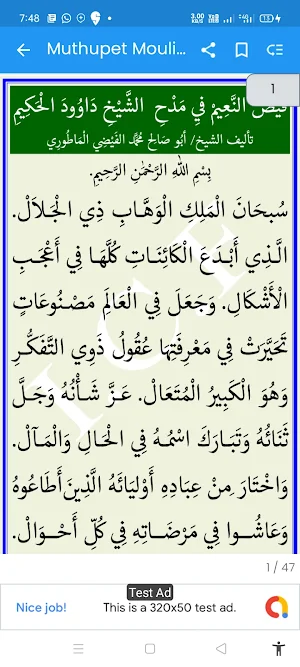 7:48
3.00 KB/S
13
Muthupet Mouli...
1
فَيْضُ النَّعِيْمْ فِيْ مَدْحِ الشَّيْخِ دَاوُودَ الْحَكِيمِ
تأليف الشيخ/ أَبُو صَالِح مُحَمَّد الفَيْضِي الْمَاطُورِي
بِسْمِ اللهِ الرَّحْمٰنِ الرَّحِيمِ.
سُبحَانَ الْمَلِكِ الْوَهَّابِ ذِي الْجَلاَلْ.
الَّذِي أَبْدَعَ الْكَائِنَاتِ كُلَّهَا فِي أَعْجَبِ
الْأَشْكَالِ. وَجَعَلَ فِي الْعَالَمِ مَصْنُوعَاتٍ
تَحَيَّرَتْ فِي مَعْرِفَتِهَا عُقُولُ ذَوِي التَّفَكُّرِ
وَهُوَ الْكَبِيرُ الْمُتَعَالْ. عَزَّ شَأْنُهُ وَجَلَّ
ثَنَائُهُ وَتَبَارَكَ اسْمُهُ فِي الْحَالِ وَالْمَآلْ.
وَاخْتَارَ مِنْ عِبَادِهِ أَوْلِيَائَهُ الَّذِينَ أَطَاعُوهُ
وَعَاشُوا فِي مَرْضَاتِهِ فِي كُلِّ أَحْوَالْ.
ICF
1 / 47
Test Ad
Nice job!
This is a 320x50 test ad.